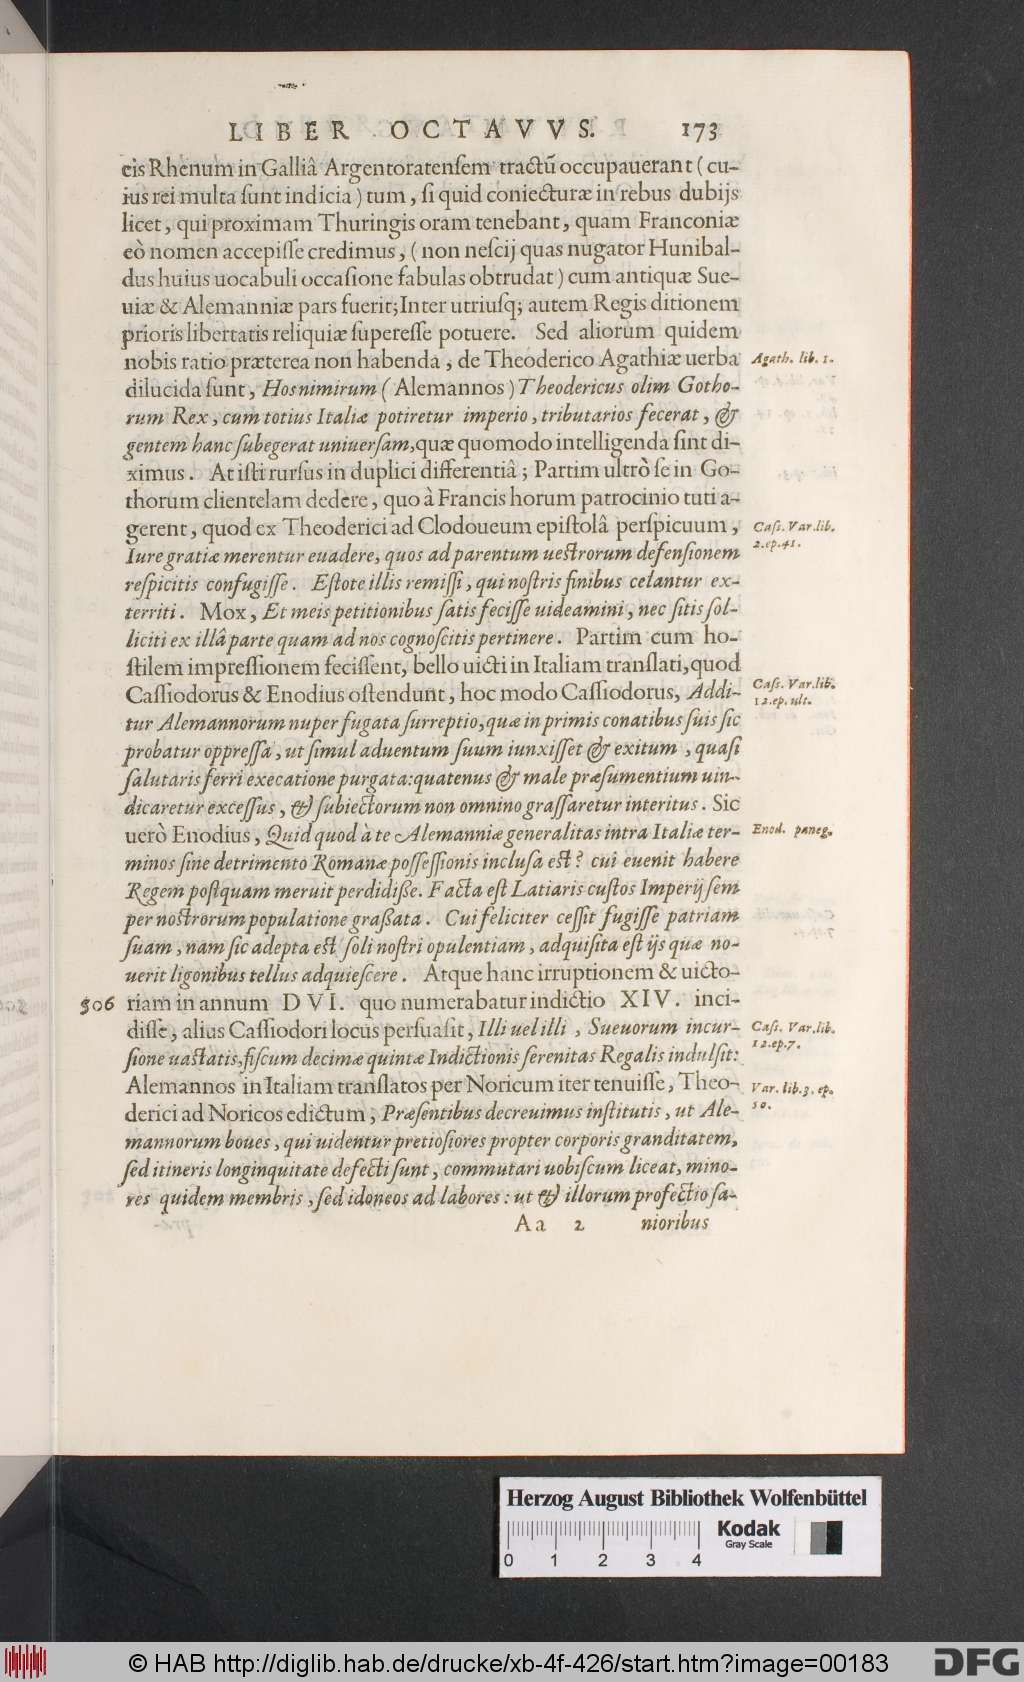 LIBER OCTAVVS. 173
cis Rhenum in Galliâ Argentoratensem tractũ occupauerant (cu-
ius rei multa sunt indicia) tum, si quid coniecturæ in rebus dubijs
licet, qui proximam Thuringis oram tenebant, quam Franconiæ
eò nomen accepisse credimus, (non nescij quas nugator Hunibal-
dus huius uocabuli occasione fabulas obtrudat) cum antiquæ Sue-
uiæ & Alemanniæ pars fuerit; Inter utriusq; autem Regis ditionem
prioris libertatis reliquiæ superesse potuere. Sed aliorum quidem
nobis ratio præterea non habenda, de Theoderico Agathiæ uerba
Agath. lib. 1.
dilucida sunt, Hos nimirum (Alemannos) Theodericus olim Gotho-
rum Rex, cum totius Italiæ potiretur imperio, tributarios fecerat, &
gentem hanc subegerat uniuersam, quæ quomodo intelligenda sint di-
ximus. At isti rursus in duplici differentiâ; Partim ultrò se in Go-
thorum clientelam dedere, quo à Francis horum patrocinio tuti a-
gerent, quod ex Theoderici ad Clodoueum epistolâ perspicuum,
Cass. Var. lib.
2. ep. 41.
Iure gratiæ merentur euadere, quos ad parentum uestrorum defensionem
respicitis confugisse. Estote illis remissi, qui nostris finibus celantur ex-
territi. Mox, Et meis petitionibus satis fecisse uideamini, nec sitis sol-
liciti ex illâ parte quam ad nos cognoscitis pertinere. Partim cum ho-
stilem impressionem fecissent, bello uicti in Italiam translati, quod
Cassiodorus & Enodius ostendunt, hoc modo Cassiodorus, Addi-
Cass. Var. lib.
12. ep. ult.
tur Alemannorum nuper fugata surreptio, quæ in primis conatibus suis sic
probatur oppressa, ut simul aduentum suum iunxisset & exitum, quasi
salutaris ferri execatione purgata: quatenus & male præsumentium uin-
dicaretur excessus, & subiectorum non omnino grassaretur interitus. Sic
uerò Enodius, Quid quod à te Alemanniæ generalitas intra Italiæ ter-
Enod. paneg.
minos sine detrimento Romanæ possessionis inclusa est? cui euenit habere
Regem postquam meruit perdidiße. Facta est Latiaris custos Imperij sem
per nostrorum populatione graßata. Cui feliciter cessit fugisse patriam
suam, nam sic adepta est soli nostri opulentiam, adquisita est ijs quæ no-
uerit ligonibus tellus adquiescere. Atque hanc irruptionem & uicto-
506 riam in annum DVI. quo numerabatur indictio XIV. inci-
disse, alius Cassiodori locus persuasit, Illi uel illi, Sueuorum incur-
Cass. Var. lib.
12. ep. 7.
sione uastatis, fiscum decimæ quintæ Indictionis serenitas Regalis indulsit:
Alemannos in Italiam translatos per Noricum iter tenuisse, Theo-
Var. lib. 3. ep.
50.
derici ad Noricos edictum, Præsentibus decreuimus institutis, ut Ale-
mannorum boues, qui uidentur pretiosiores propter corporis granditatem,
sed itineris longinquitate defecti sunt, commutari uobiscum liceat, mino-
res quidem membris, sed idoneos ad labores: ut & illorum profectio sa-
Aa 2 nioribus
Herzog August Bibliothek Wolfenbüttel
Kodak
Gray Scale
0 1 2 3 4
© HAB http://diglib.hab.de/drucke/xb-4f-426/start.htm?image=00183
DFG